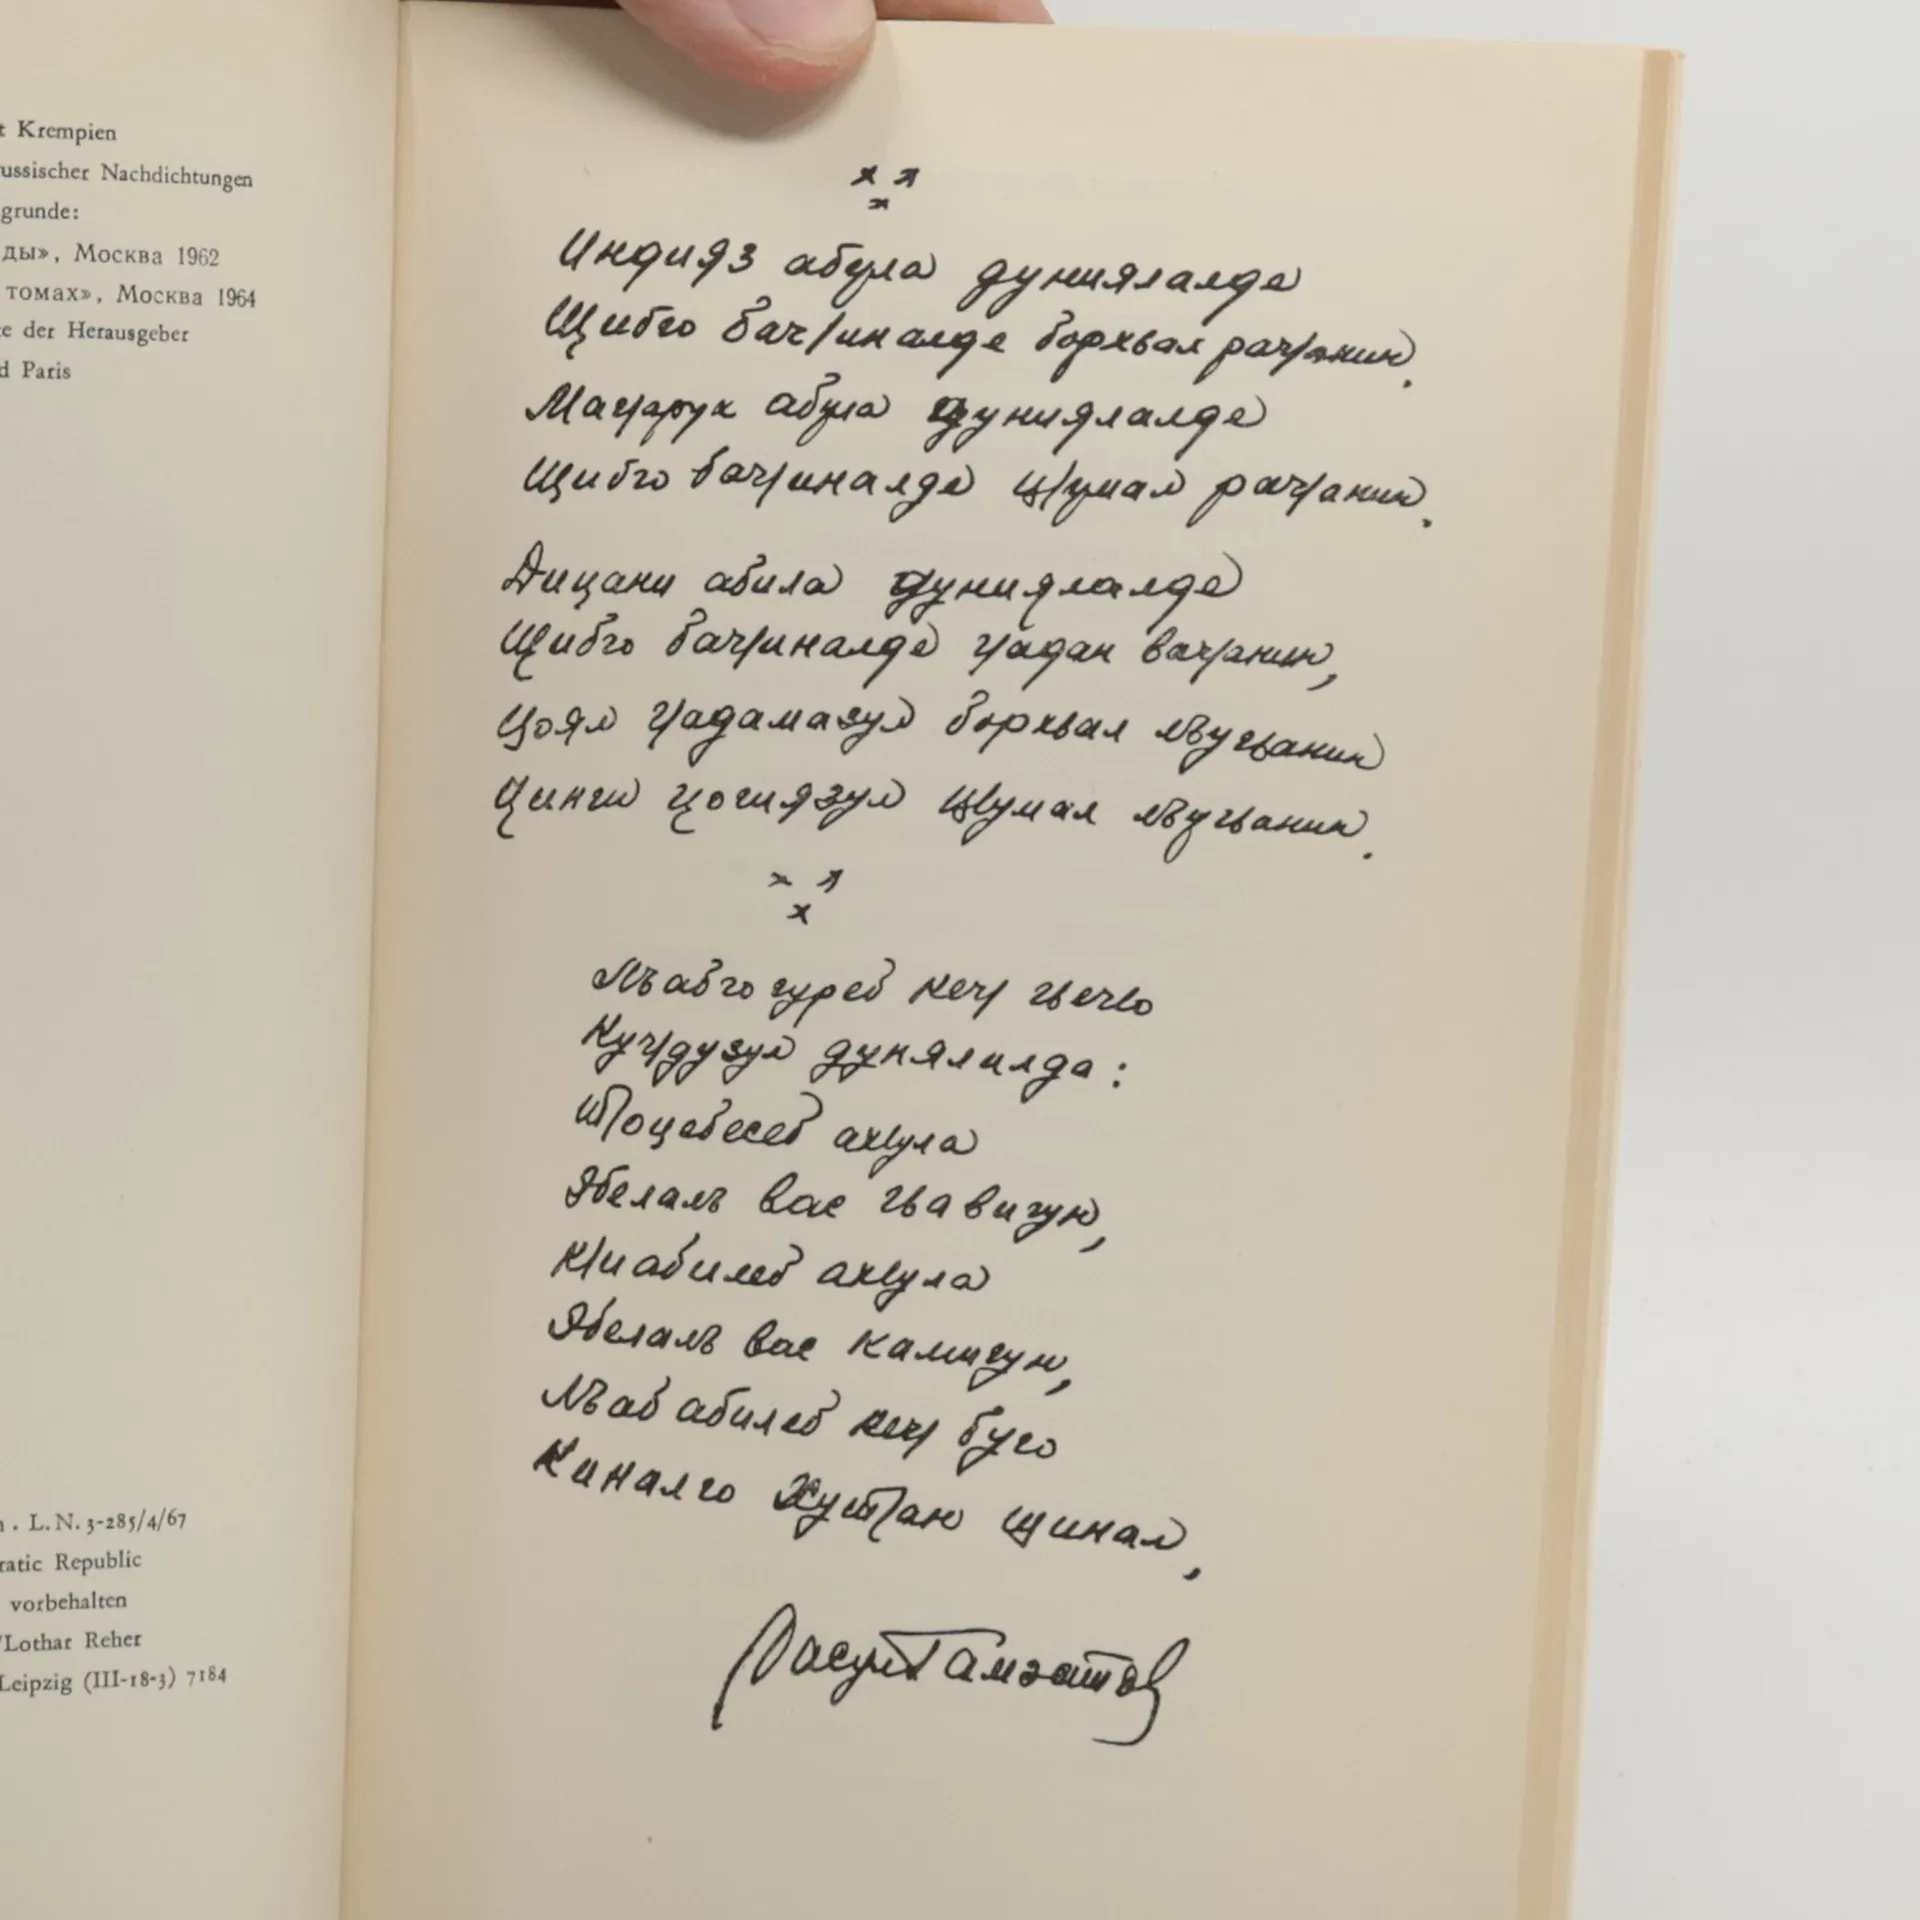 t Krempien
ussischer Nachdichtungen
grunde:
ды», Москва 1962
томах», Москва 1964
te der Herausgeber
d Paris
n . L.N. 3-285/4/67
ratic Republic
vorbehalten
/Lothar Reher
Leipzig (III-18-3) 7184
Индияз абула дуниялалде
Щибго бачӀиналде борхьал рачӀанин,
МагӀарух абула дуниялалде
Щибго бачӀиналде цӀумал рачӀанин.
Дицани абила дуниялалде
Щибго бачӀиналде гӀадан вачӀанин,
Цоял гӀадамазул борхьал лъугьанин
Цинги цогиязул цӀумал лъугьанин.
Лъабго гуреб кечӀ гьечӀо
КучӀдузул дунялилда:
ТӀоцебесеб ахӀула
Эбелалъ вас гьавигун,
КӀиабилеб ахӀула
Эбелалъ вас камигун,
Лъабабилеб кечӀ буго
Киналго хутӀан щинал,
Расул Гамзатов